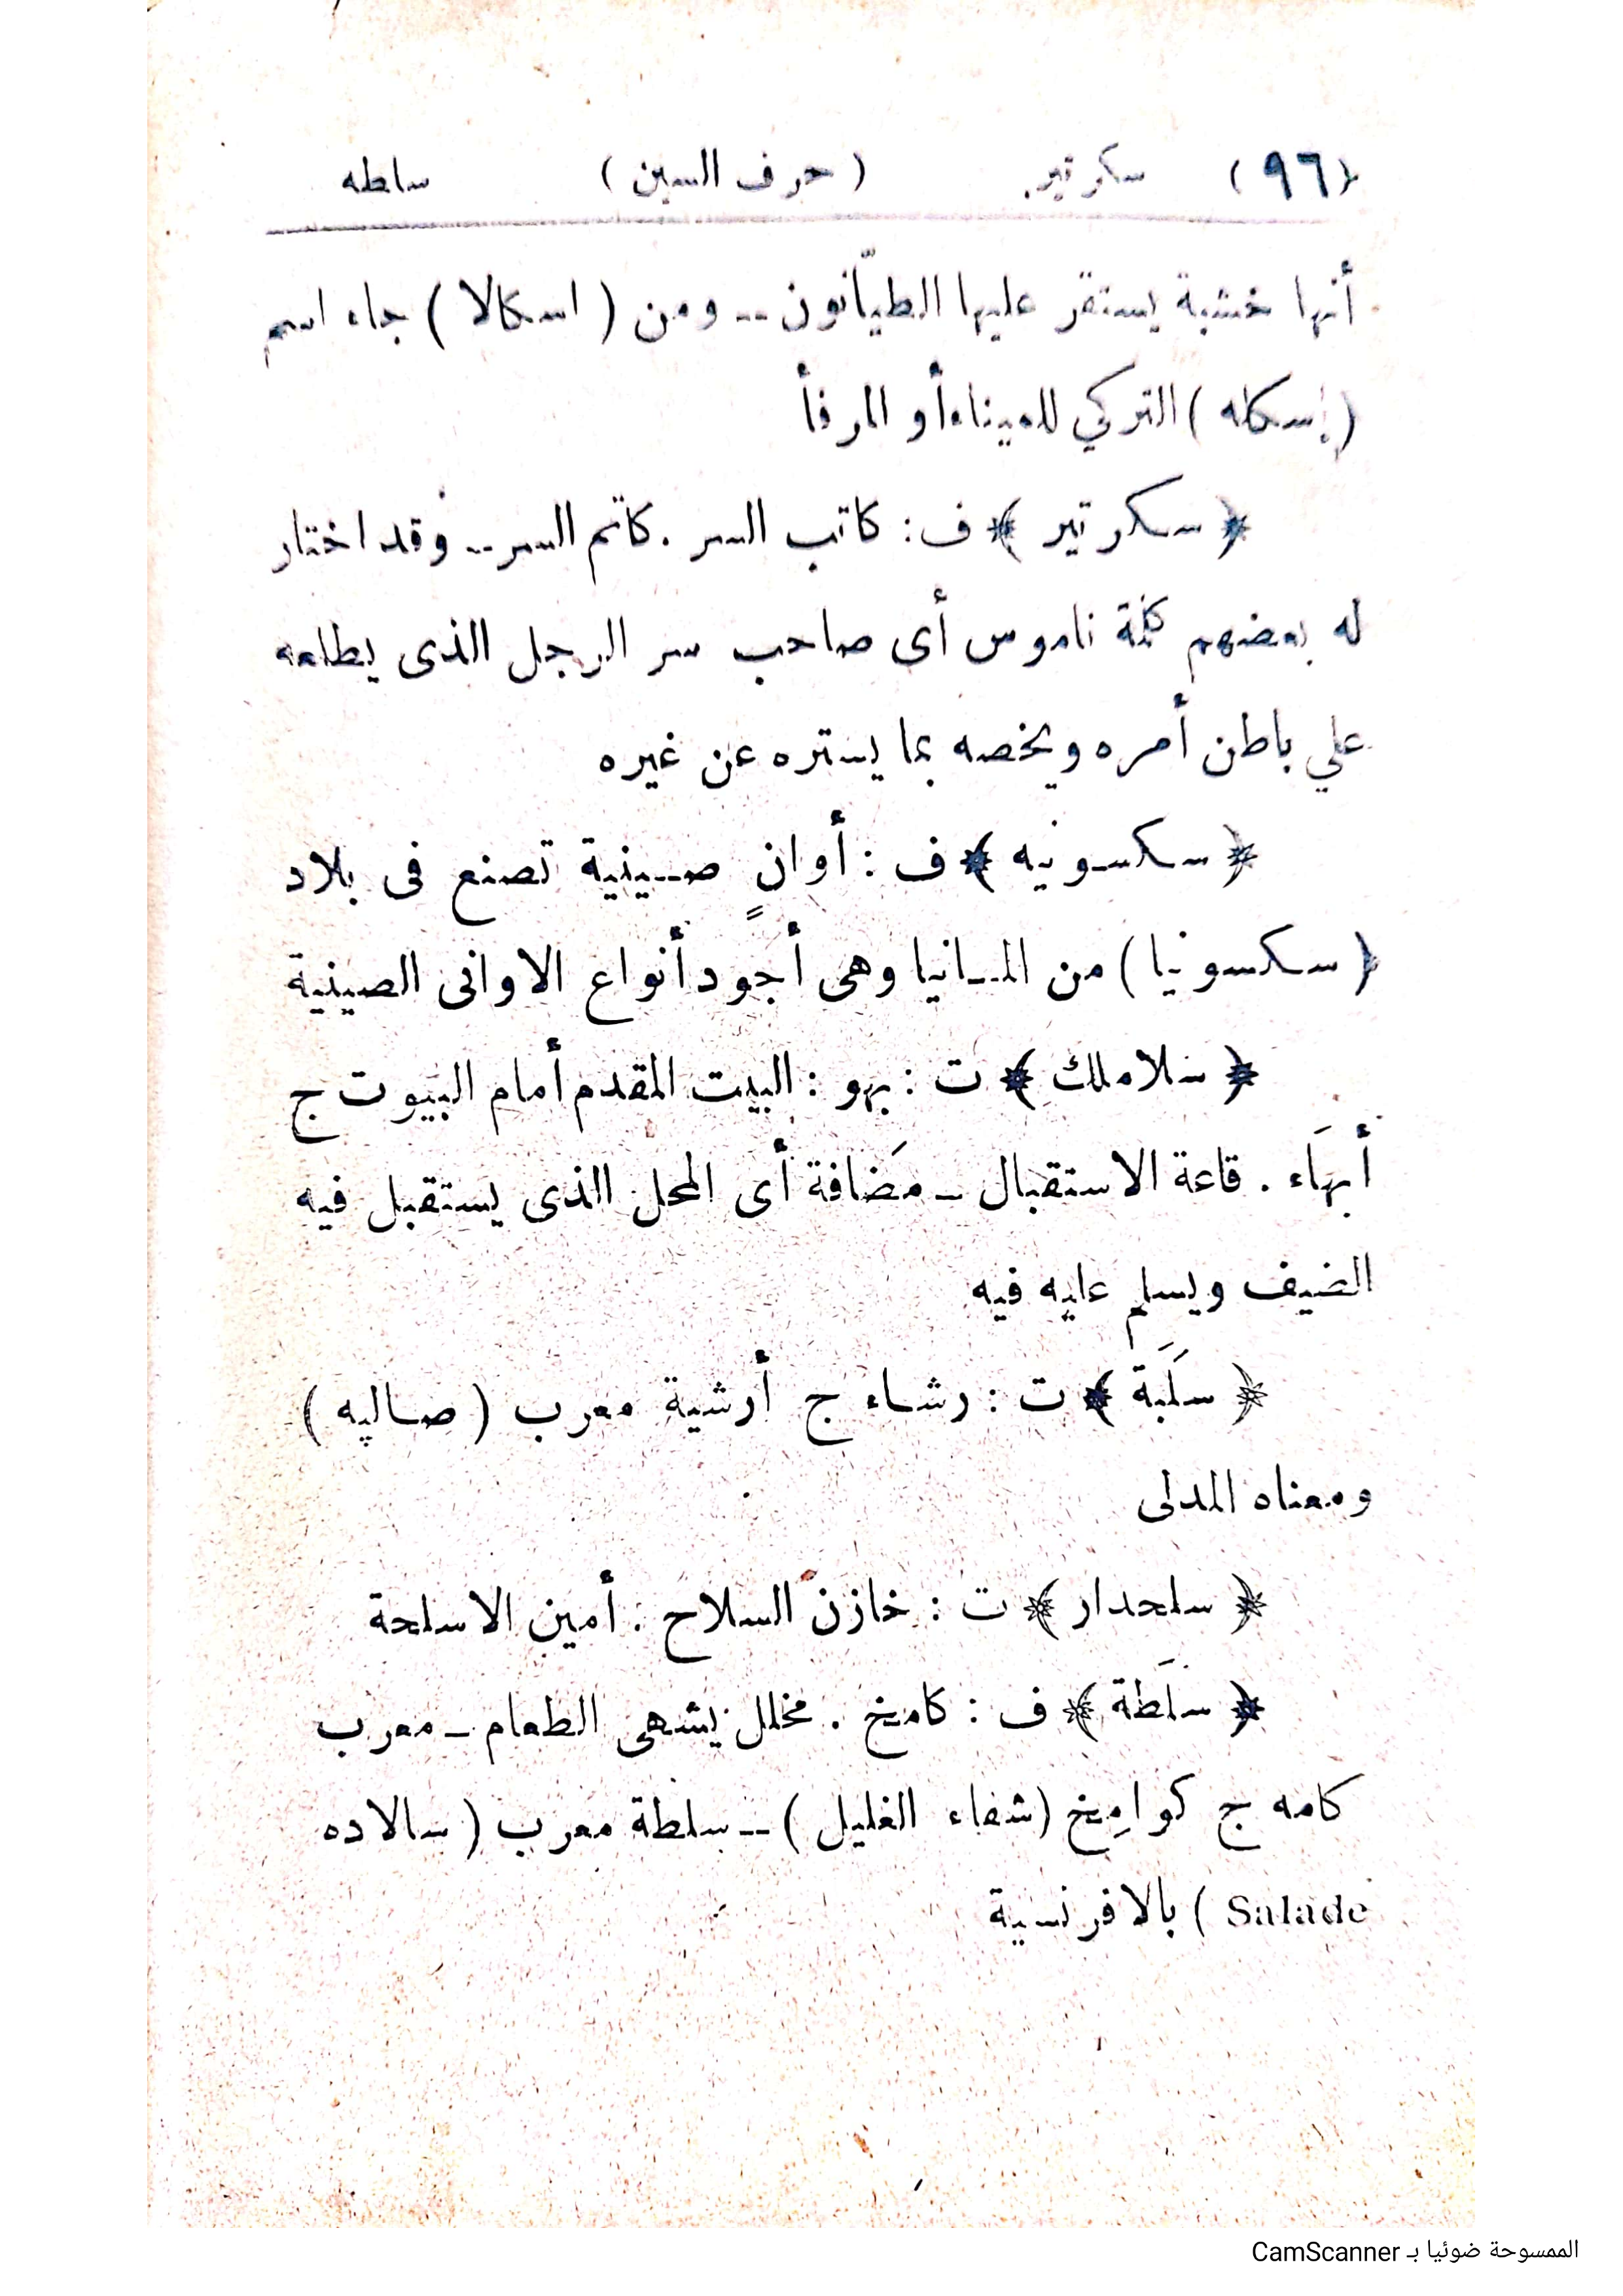 (٩٦) سكرتير (حرف السين) سلطه
أنها خشبة يستقر عليها الطيّانون -- ومن (اسكالا) جاء اسم
(إسكله) التركي للميناء أو المرفأ
﴿سكرتير﴾ ف: كاتب السر. كاتم السر -- وقد اختار
له بعضهم كلمة ناموس أى صاحب سر الرجل الذى يطلعه
علي باطن أمره ويخصه بما يستره عن غيره
﴿سكسونيه﴾ ف: أوانٍ صينية تصنع فى بلاد
(سكسونيا) من المانيا وهى أجود أنواع الاوانى الصينية
﴿سلاملك﴾ ت: بهو: البيت المقدم أمام البيوت ج
أبهَاء. قاعة الاستقبال - مَضافة أى المحل الذى يستقبل فيه
الضيف ويسلم عليه فيه
﴿سَلَبَة﴾ ت: رشاء ج أرشية معرب (صاليه)
ومعناه المدلى
﴿سلحدار﴾ ت: خازن السلاح. أمين الاسلحة
﴿سلَطة﴾ ف: كامخ. مخلل يشهى الطعام - معرب
كامه ج كوامِخ (شفاء الغليل) - سلطة معرب (سالاده
Salade) بالافرنسية
الممسوحة ضوئيا بـ CamScanner